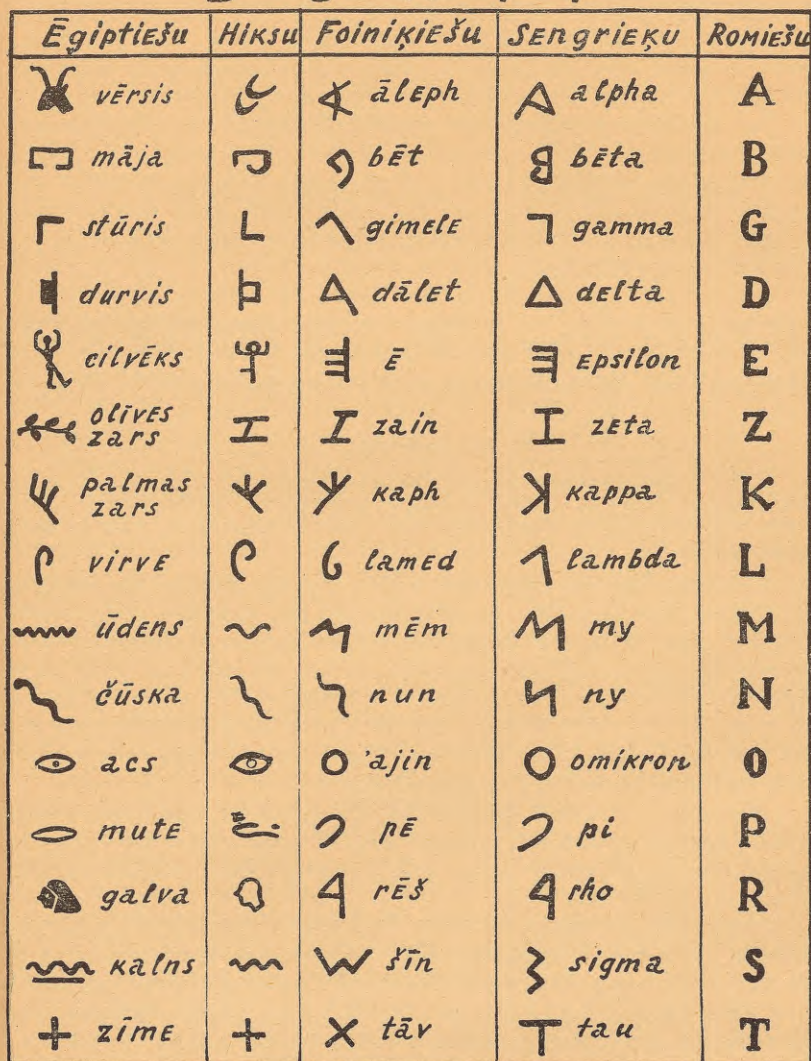 Ēgiptiešu Hiksu Foiniķiešu Sengrieķu Romiešu
vērsis āleph alpha A
māja bēt bēta B
stūris gimele gamma G
durvis dālet delta D
cilvēks ē epsilon E
olīves zars zain zeta Z
palmas zars kaph kappa K
virve lamed lambda L
ūdens mēm my M
čūska nun ny N
acs 'ajin omikron O
mute pē pi P
galva rēš rho R
kalns šīn sigma S
zīme tāv tau T